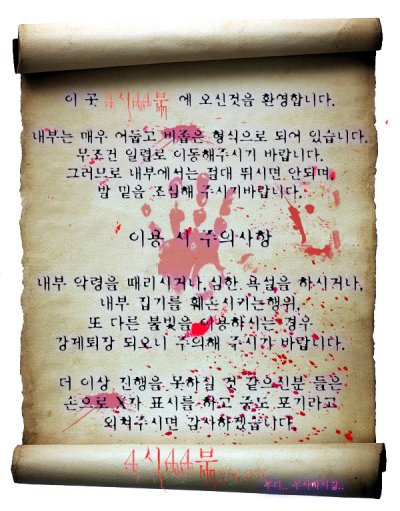 이 곳 4시44분 에 오신것을 환영합니다.
내부는 매우 어둡고 비좁은 형식으로 되어 있습니다.
무조건 일렬로 이동해주시기 바랍니다.
그러므로 내부에서는 절대 뛰시면 안되며,
발 밑을 조심해 주시기바랍니다.
이용 시 주의사항
내부 악령을 때리시거나, 심한 욕설을 하시거나,
내부 집기를 훼손시키는행위,
또 다른 불빛을 이용하시는 경우
강제퇴장 되오니 주의해 주시기 바랍니다.
더 이상 진행을 못하실 것 같으신분 들은
손으로 X자 표시를 하고 중도 포기라고
외쳐주시면 감사하겠습니다.
4시44분
부디.. 무사하시길..